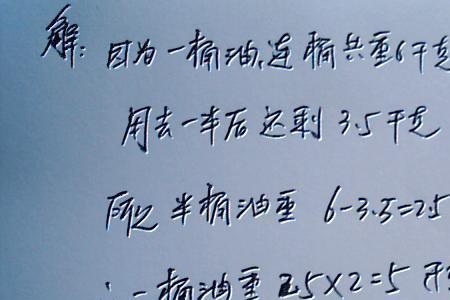 解：因为一桶油,连桶共重6千克
用去一半后还剩 3.5千克
所以半桶油重 6-3.5=2.5
∴一桶油重 2.5×2=5 千克